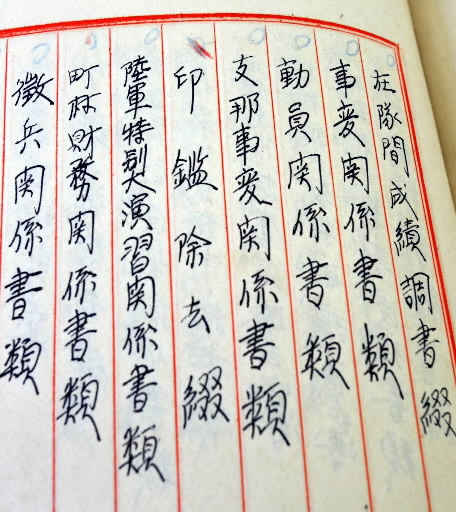 在隊間成績調書綴
事変関係書類
動員関係書類
支那事変関係書類
印鑑除去綴
陸軍特別大演習関係書類
町村財務関係書類
徴兵関係書類